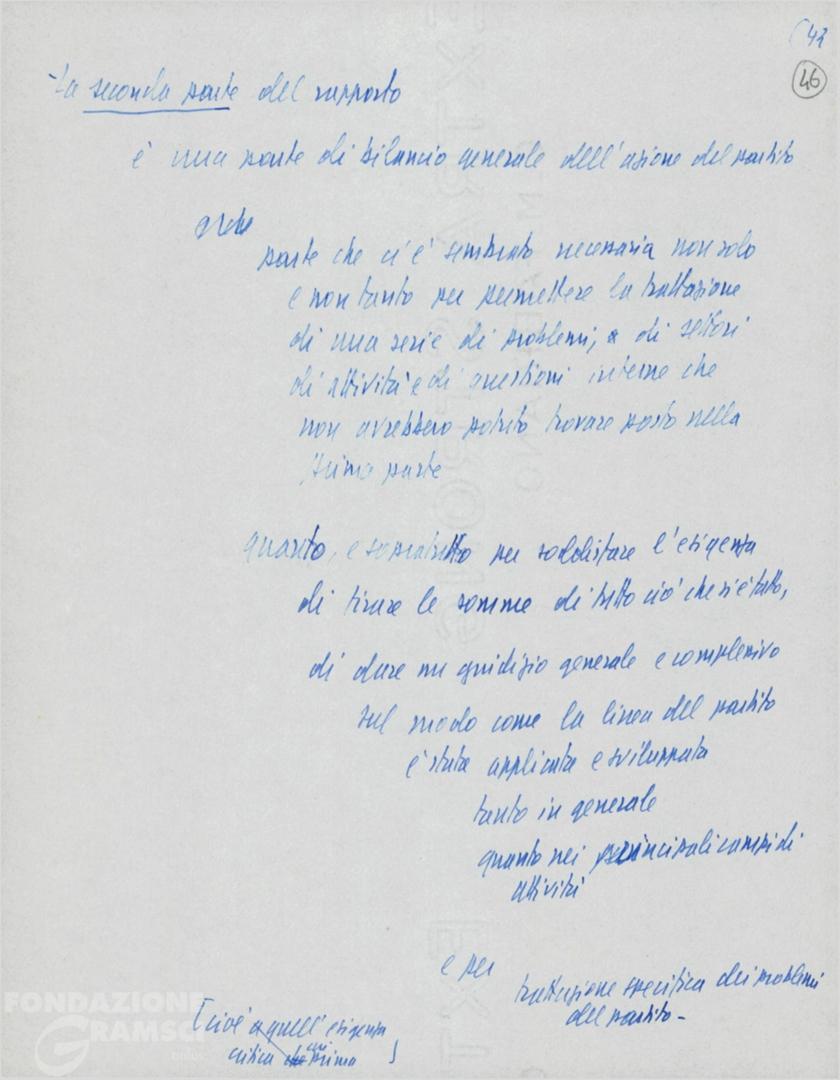 42
46
La seconda parte del rapporto
è una parte di bilancio generale dell'azione del partito
parte che ci è sembrata necessaria non solo
e non tanto per permettere la trattazione
di una serie di problemi, di settori
di attività e di questioni interne che
non avrebbero potuto trovare posto nella
prima parte
quanto, e soprattutto per soddisfare l'esigenza
di tirare le somme di tutto ciò che si è fatto,
di dare un giudizio generale e complessivo
sul modo come la linea del partito
è stata applicata e sviluppata
tanto in generale
quanto nei principali campi di
attività
e per
trattazione specifica dei problemi
del partito -
[cioè a quell'esigenza
critica di cui prima ]
FONDAZIONE
GRAMSCI
onlus